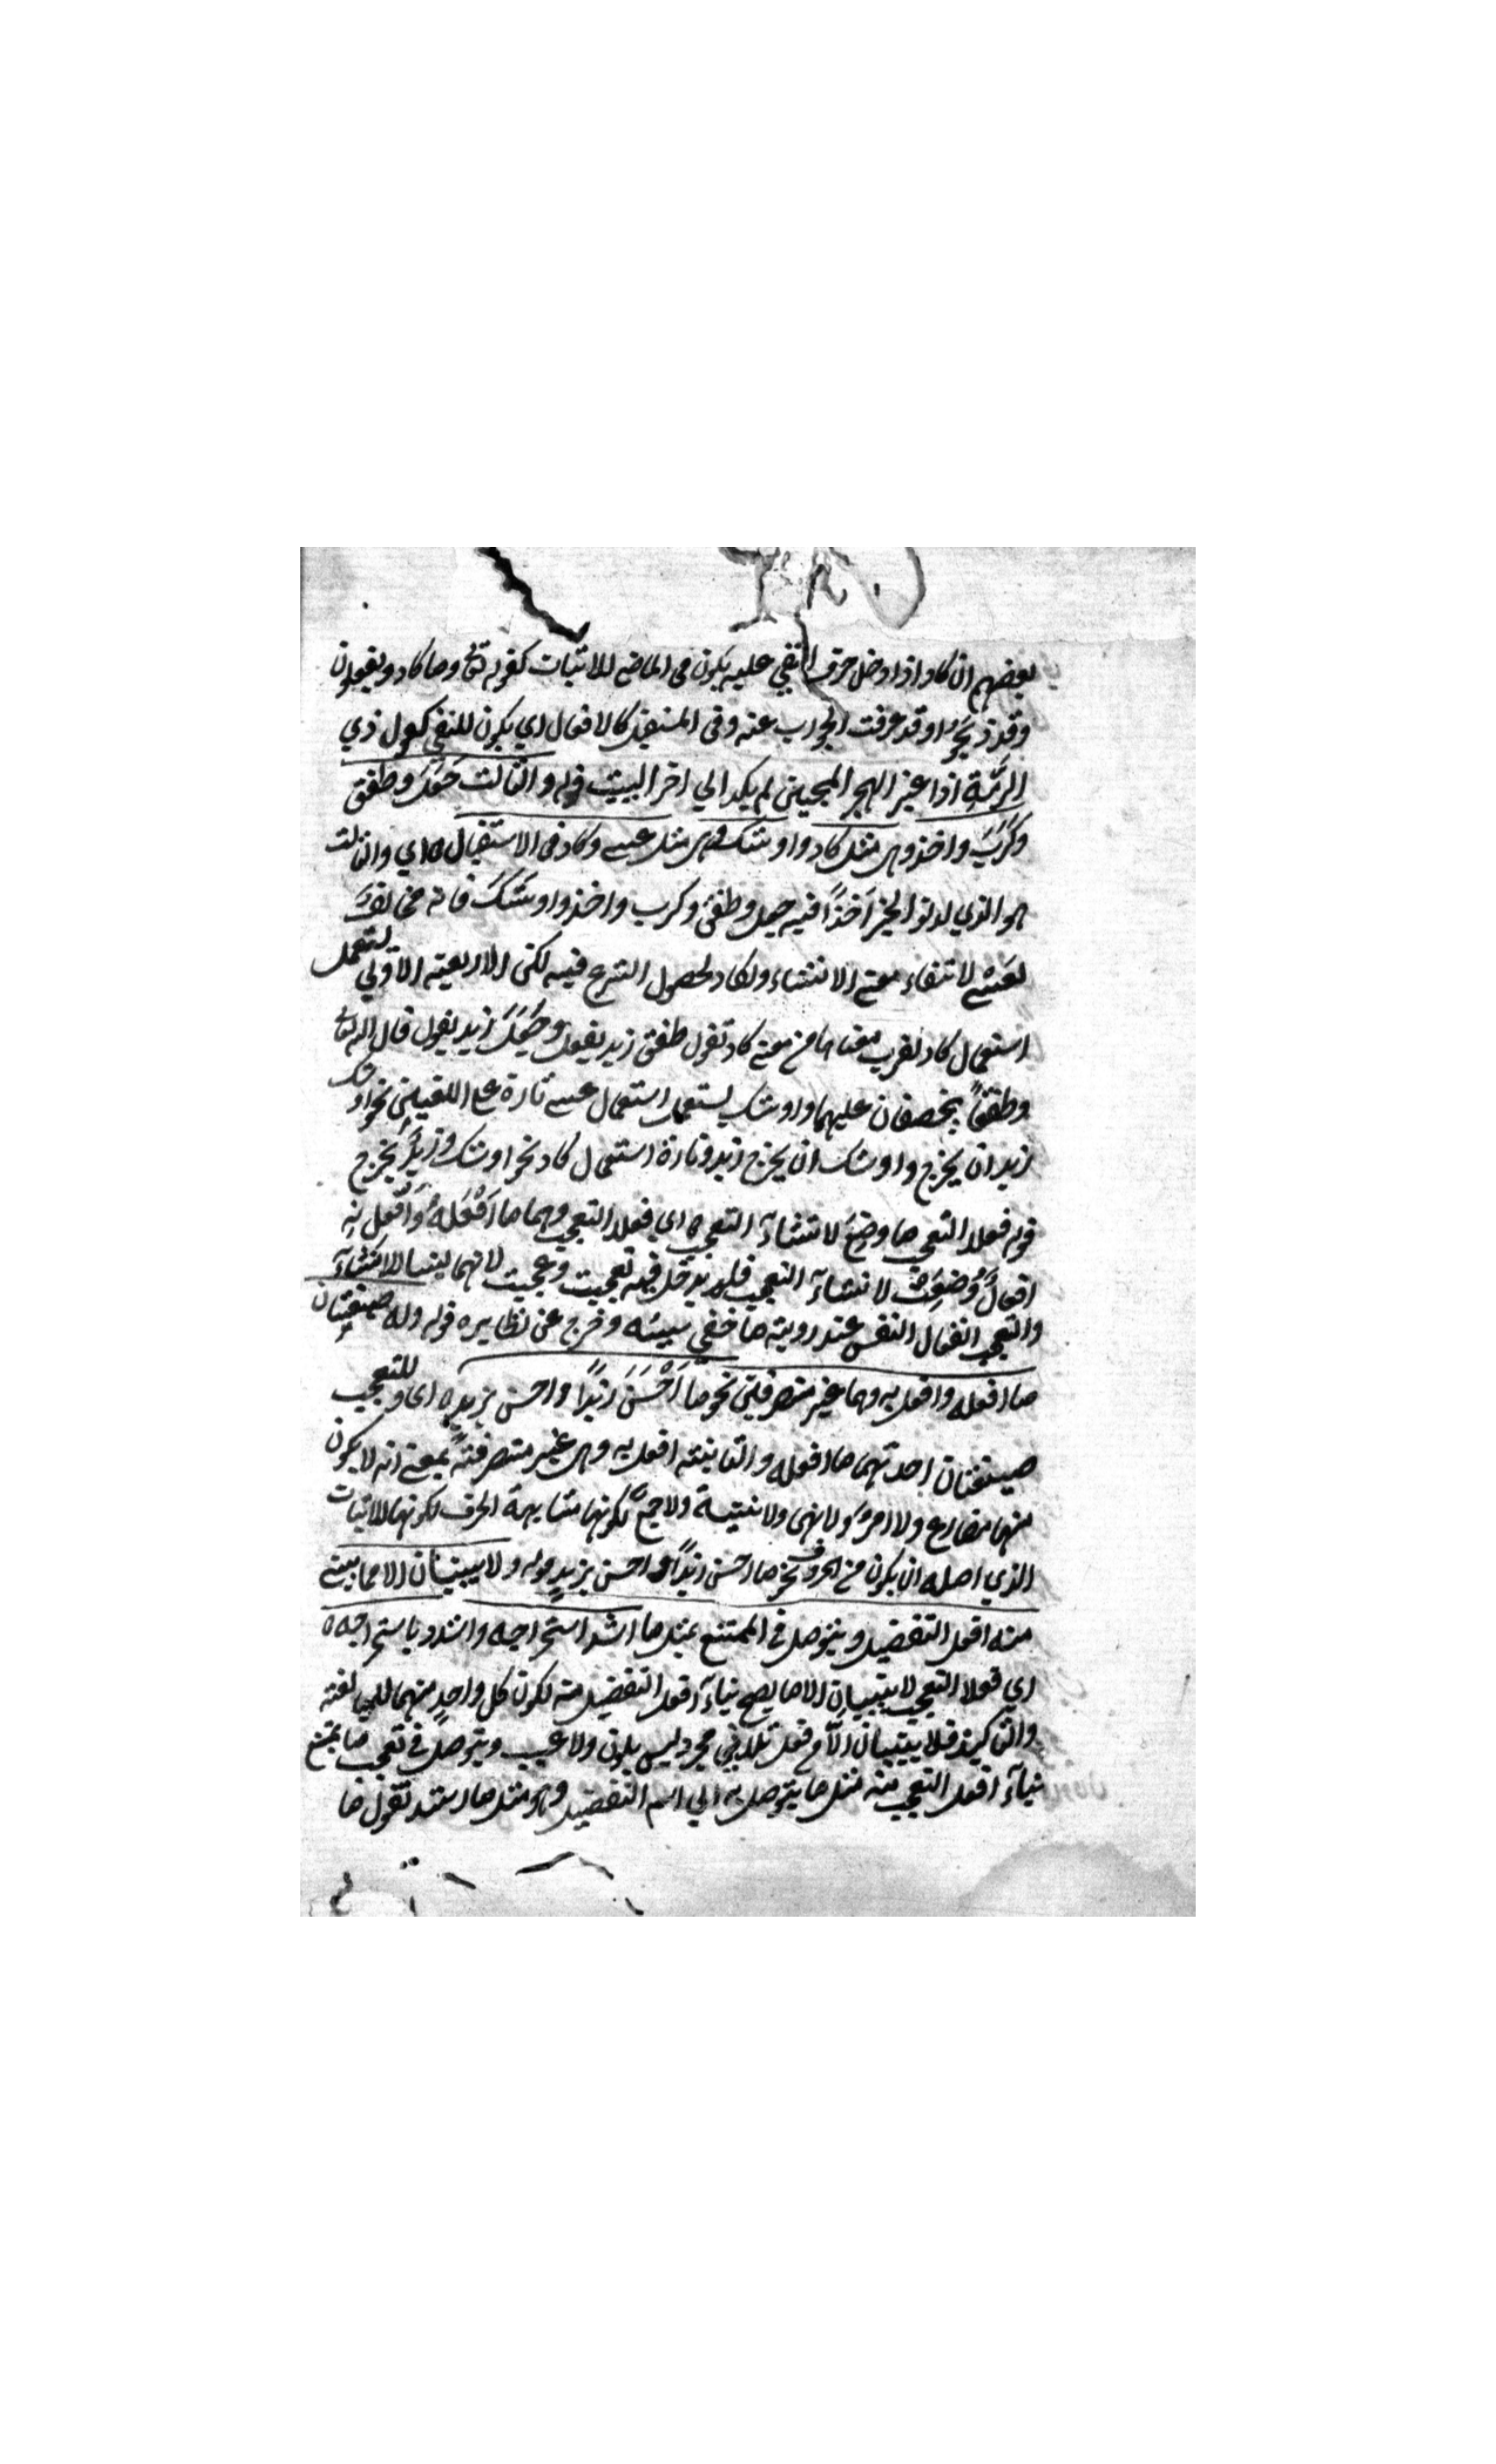 بعضهم ان كاد اذا دخل حرف النفي عليه يكون فى الماضي للاثبات كقوله تع وما كادو يفعلون
وقد ذبحوا وقد عرفت الجواب عنه وفى المستقبل كالافعال اي يكون للنفي كقول ذي
الرمّة اذا غير الهجر المحبين لم يكد الي اخر البيت قوله والثالث جعل وطفق
وكرب واخذ وهى مثل كاد واوشك وهى مثل عسى وكاد فى الاستعمال ه اي والثالث
هو الذي لدنو الخبر اخذًا فيه جعل وطفق وكرب واخذ واوشك فانه مخالف
لعسى لانتفاء معنى الانشاء ولكاد لحصول الشرع فيه لكن الاربعة الاولي يستعمل
استعمال كاد لقرب معناها من معنى كاد تقول طفق زيد يفعل وجعل زيد يقول قال الله تعا
وطفقا يخصفان عليهما واوشك يستعمل استعمال عسى تارة على اللغتين نحو اوشك
زيد ان يخرج واوشك ان يخرج زيد وتارة استعمال كاد نحو اوشك زيد يخرج
قوله فعلا التعجب ما وضع لانشاء التعجب ه اي فعلا التعجب وهما ما افعله وافعل به
افعال وضعت لانشاء التعجب فلم يدخل فيه تعجبت وعجبت لانهما ليسا للانشاء
والتعجب انفعال النفس عند روية ما خفي سببه وخرج عن نظايره قوله وله صيغتان
ما افعله وافعل به وهما غير متصرفين نحو ما احسن زيدًا واحسن بزيد ه اى وللتعجب
صيغتان احدتهما ما افعله والثانية افعل به وهى غير متصرفة بمعنى انه لا يكون
منها مضارع ولا امر ولا نهى ولا تثنية ولا جمع لكونها مشابهة الحرف لكونها للاثبات
الذي اصله ان يكون من الحروف نحو ما احسن زيدًا واحسن بزيد قوله ولا يبنيان الا مما يبنى
منه افعل التفضيل ويتوصل فى الممتنع بمثل ما اشد استخراجه واشدد باستخراجه ه
اي فعلا التعجب لا يبنيان الا ما يصح بناء افعل التفضيل منه لكون كل واحد منهما للمبالغة
والتاكيد فلا يبنيان الا من فعل ثلاثي مجرد ليس بلون ولا عيب ويتوصل فى تعجب ما يمتنع
بناء افعل التعجب منه بمثل ما يتوصل به الي اسم التفضيل وهو مثل ما اشد تقول ما